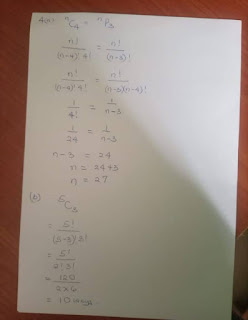 4(a): ⁿC₄ = ⁿP₃
n!/(n-4)! 4! = n!/(n-3)!
n!/(n-4)! 4! = n!/(n-3)(n-4)!
1/4! = 1/n-3
1/24 = 1/n-3
n-3 = 24
n = 24+3
n = 27
(b) ⁵C₃
= 5!/(5-3)! 3!
= 5!/2! 3!
= 120/2×6
= 10 ways.